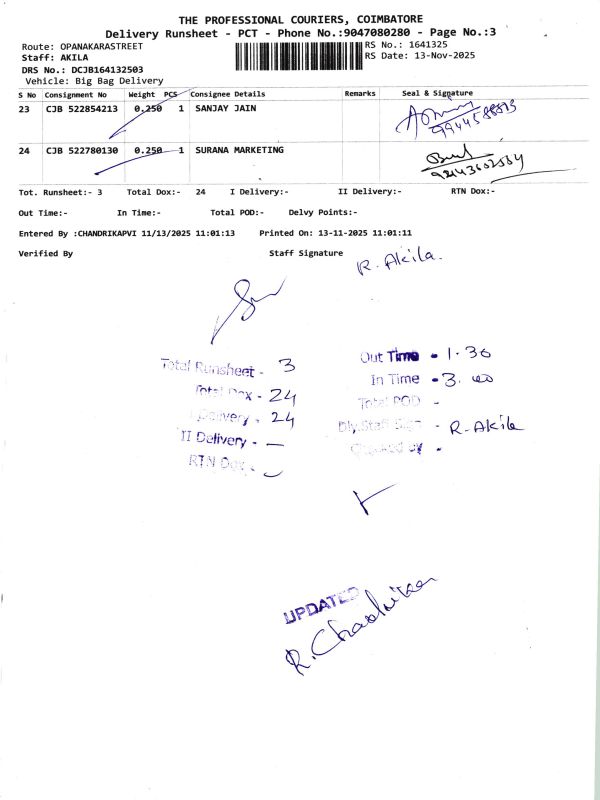 THE PROFESSIONAL COURIERS, COIMBATORE
Delivery Runsheet - PCT - Phone No.:9047080280 - Page No.:3
Route: OPANAKARASTREET RS No.: 1641325
Staff: AKILA RS Date: 13-Nov-2025
DRS No.: DCJB164132503
Vehicle: Big Bag Delivery
S No Consignment No Weight PCS Consignee Details Remarks Seal & Signature
23 CJB 522854213 0.250 1 SANJAY JAIN
24 CJB 522780130 0.250 1 SURANA MARKETING
Tot. Runsheet:- 3 Total Dox:- 24 I Delivery:- II Delivery:- RTN Dox:-
Out Time:- In Time:- Total POD:- Delvy Points:-
Entered By :CHANDRIKAPVI 11/13/2025 11:01:13 Printed On: 13-11-2025 11:01:11
Verified By Staff Signature R. Akila.
Total Runsheet - 3 Out Time - 1.30
Total Dox - 24 In Time - 3.00
I Delivery - 24 Total POD -
II Delivery - — Dly.Staff Sign - R. Akila
RTN Dox - Checked by -
UPDATED
R. Chandrika